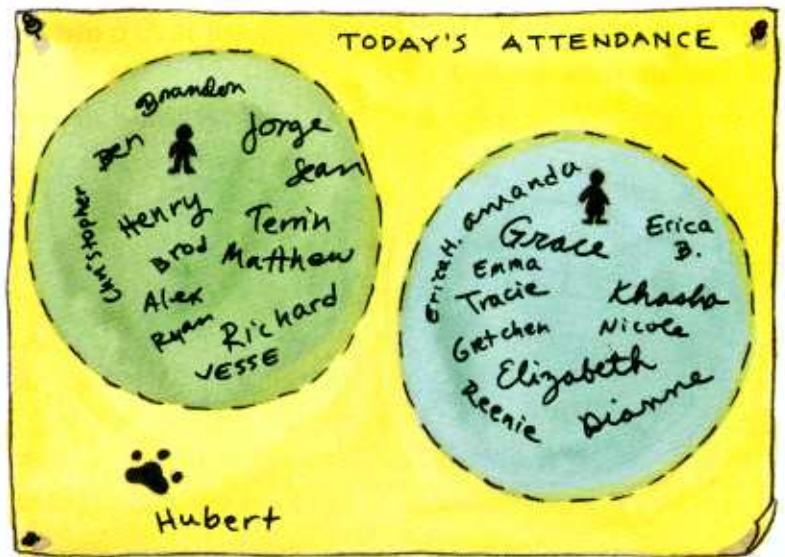 TODAY'S ATTENDANCE
Brandon
Ben
Jorge
Sean
Christopher
Henry
Terrin
Brad
Matthew
Alex
Ryan
Richard
JESSE
Erica H.
Amanda
Grace
Erica
B.
Emma
Tracie
Khasha
Gretchen
Nicole
Elizabeth
Reenie
Dianne
Hubert